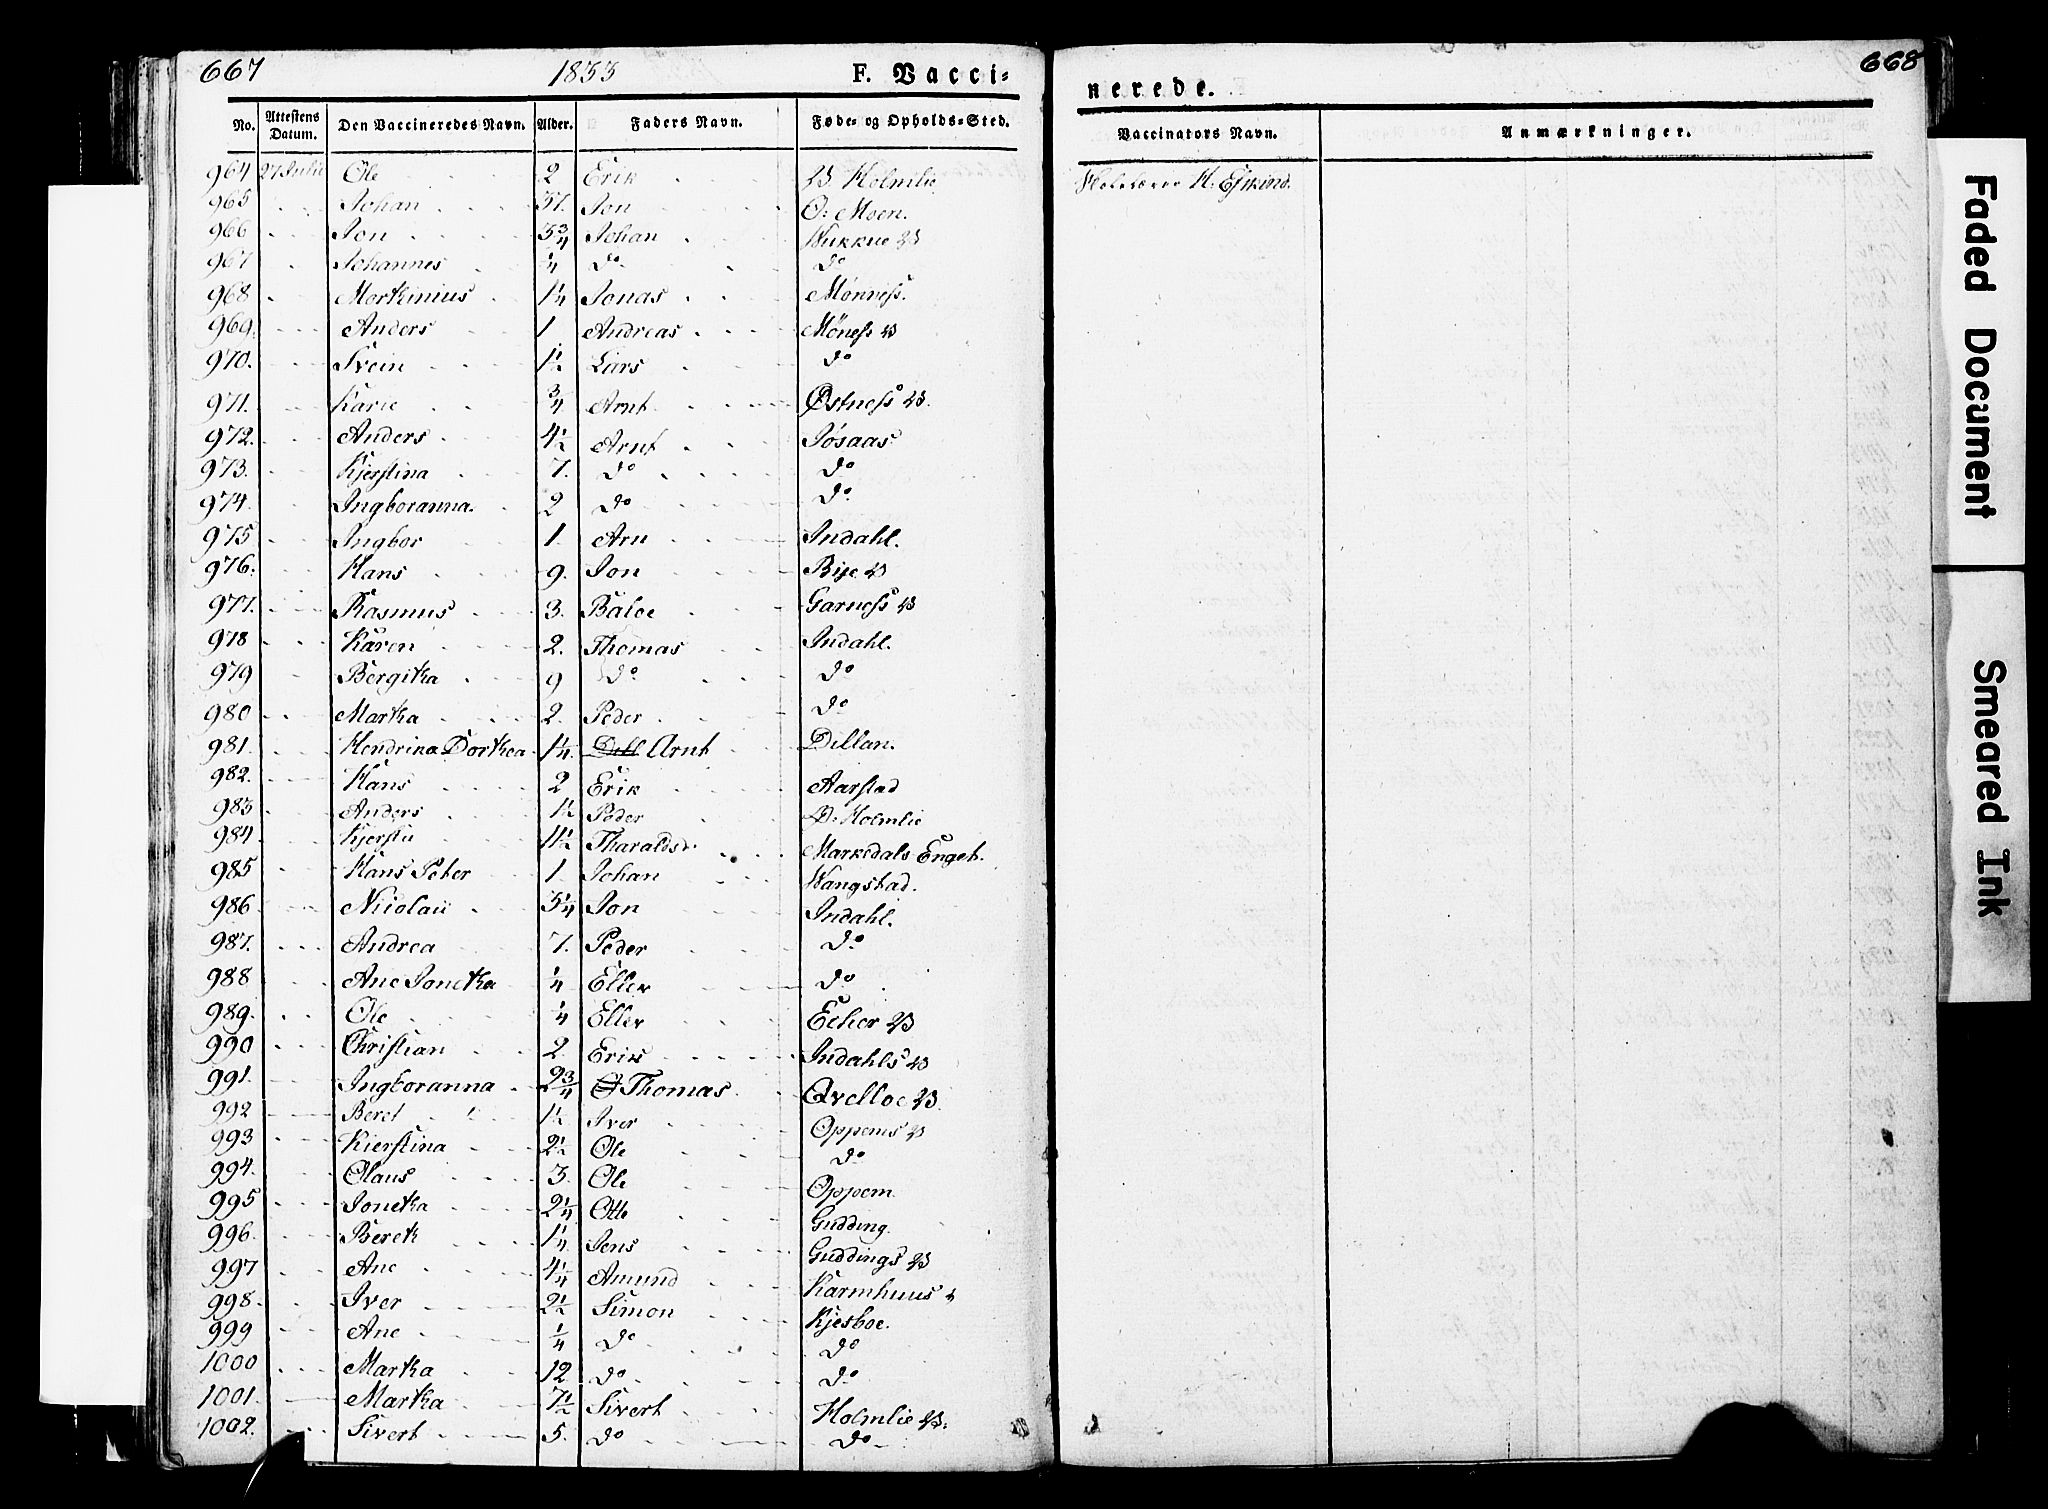 667 1833 F. Vacci-
No. Attestens Datum. Den Vaccineredes Navn. Alder. Faders Navn. Føde- og Opholds-Sted.
964 27 Julii Ole 2 Erik Holmlie
965 Johan Jon Moen.
966 Jon 3 3/4 Johan Wukkue
967 Johannes 1/4 do do
968 Morthinius 1 1/4 Jonas Mönness.
969. Anders 1 Andreas Möness
970. Svein 1 1/2 Lars do
971. Karie 3/4 Arnt Østness
972. Anders 4 1/2 Arnt Jøsaas
973. Kjerstina 7. do do
974. Ingboranna. 2 do do
975 Ingbor 1 Arn Indahl.
976. Hans 9. Jon
977. Rasmus 3. Baloe Garness
978 Karen 2. Thomas Indahl.
979 Bergitha 9 do do
980 Martha 2. Peder do
981. Hendrina Dorthea 1 1/4 Dill Arnt Dillan.
982. Hans 2 Erik Aarstad
983 Anders 1 1/2 Peder Holmlie
984. Kjersti Tharalds Marksdals Enget.
985 Hans Peter 1 Johan Wangstad.
986 Nicolaii 3 1/4 Jon Indahl.
987. Andrea 7. Peder do
988 Ane Jonetha 1/4 Eller do
989. Ole 1/4 Eller Ecker
990 Christian 2. Erik Indahls
991. Ingboranna 2 3/4 Thomas Qvelloe
992 Beret 1 1/2 Iver Oppems
993 Kierstina 2 1/2 Ole do
994. Olaus 3. Ole Oppem
995 Jonetha 2 1/4 Otte Gudding.
996. Bereth 1 1/4 Jens Guddings
997 Ane 4 1/4 Amund Karmhuus
998. Iver 2 1/2 Simon Kjesboe.
999 Ane 1/4 do do
1000 Martha 12 do do
1001. Martha 7 1/2 Sivert Holmlie
1002. Sivert 5. do do
nerede. 668
Vaccinators Navn. Anmærkninger.
Faded Document
Smeared Ink